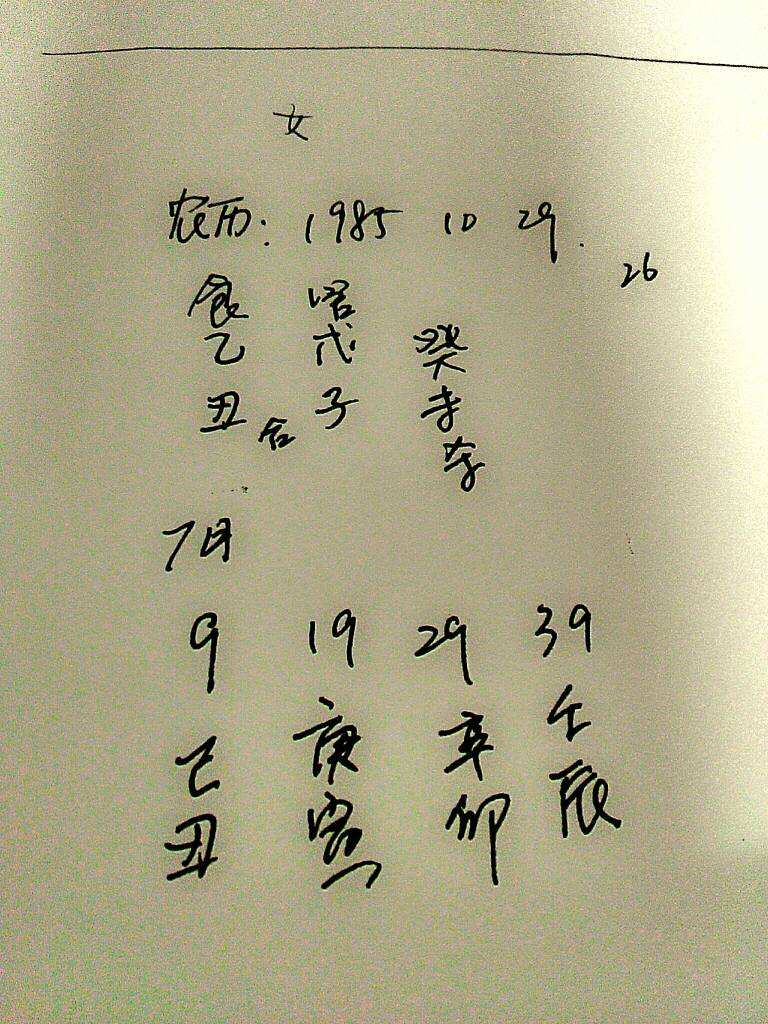 女
农历: 1985 10 29.
26
食 官
乙 戊 癸
丑 合 子 未
7月
9 19 29 39
己 庚 辛 壬
丑 寅 卯 辰